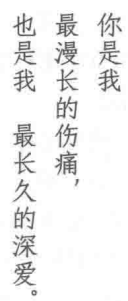 你是我
最漫长的伤痛，
也是我　最长久的深爱。